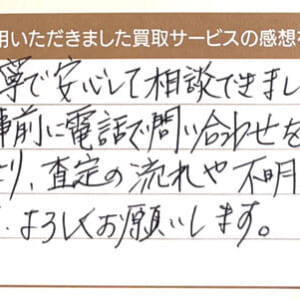 用いただきました買取サービスの感想を
寧で安心して相談できまし
事前に電話で問い合わせを
り、査定の流れや不明
、よろしくお願いします。